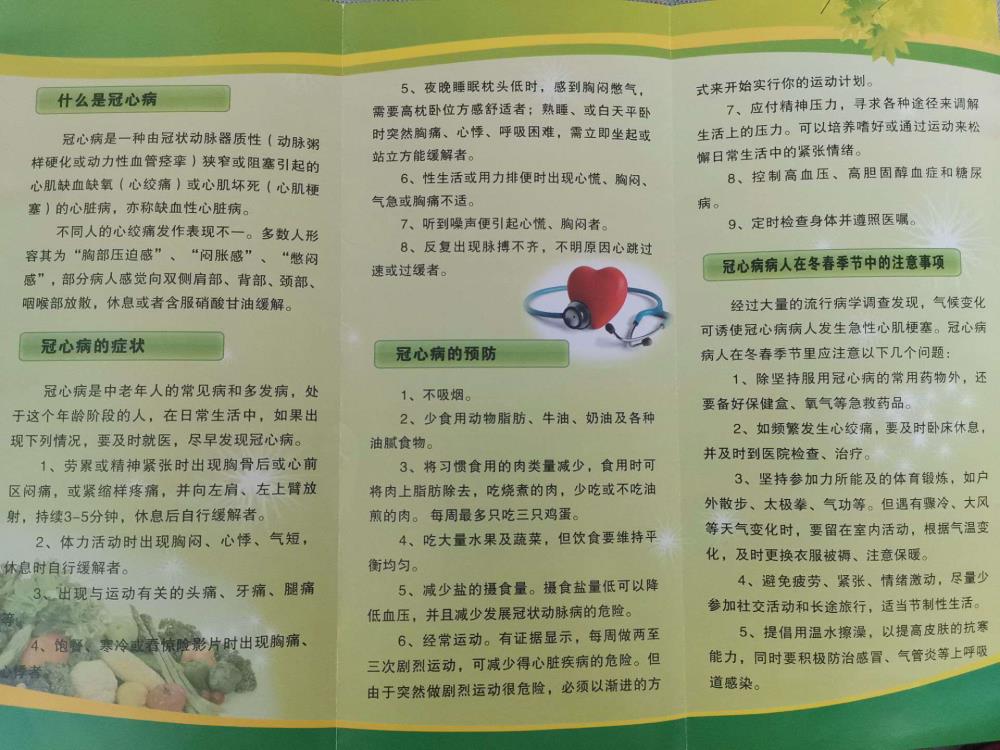 什么是冠心病
冠心病是一种由冠状动脉器质性（动脉粥
样硬化或动力性血管痉挛）狭窄或阻塞引起的
心肌缺血缺氧（心绞痛）或心肌坏死（心肌梗
塞）的心脏病，亦称缺血性心脏病。
不同人的心绞痛发作表现不一。多数人形
容其为“胸部压迫感”、“闷胀感”、“憋闷
感”，部分病人感觉向双侧肩部、背部、颈部、
咽喉部放散，休息或者含服硝酸甘油缓解。
冠心病的症状
冠心病是中老年人的常见病和多发病，处
于这个年龄阶段的人，在日常生活中，如果出
现下列情况，要及时就医，尽早发现冠心病。
1、劳累或精神紧张时出现胸骨后或心前
区闷痛，或紧缩样疼痛，并向左肩、左上臂放
射，持续3-5分钟，休息后自行缓解者。
2、体力活动时出现胸闷、心悸、气短，
休息时自行缓解者。
3、出现与运动有关的头痛、牙痛、腿痛
等。
4、饱餐、寒冷或看惊险影片时出现胸痛、
心悸者。
5、夜晚睡眠枕头低时，感到胸闷憋气，
需要高枕卧位方感舒适者；熟睡、或白天平卧
时突然胸痛、心悸、呼吸困难，需立即坐起或
站立方能缓解者。
6、性生活或用力排便时出现心慌、胸闷、
气急或胸痛不适。
7、听到噪声便引起心慌、胸闷者。
8、反复出现脉搏不齐，不明原因心跳过
速或过缓者。
冠心病的预防
1、不吸烟。
2、少食用动物脂肪、牛油、奶油及各种
油腻食物。
3、将习惯食用的肉类量减少，食用时可
将肉上脂肪除去，吃烧煮的肉，少吃或不吃油
煎的肉。 每周最多只吃三只鸡蛋。
4、吃大量水果及蔬菜，但饮食要维持平
衡均匀。
5、减少盐的摄食量。摄食盐量低可以降
低血压，并且减少发展冠状动脉病的危险。
6、经常运动。有证据显示，每周做两至
三次剧烈运动，可减少得心脏疾病的危险。但
由于突然做剧烈运动很危险，必须以渐进的方
式来开始实行你的运动计划。
7、应付精神压力，寻求各种途径来调解
生活上的压力。可以培养嗜好或通过运动来松
懈日常生活中的紧张情绪。
8、控制高血压、高胆固醇血症和糖尿
病。
9、定时检查身体并遵照医嘱。
冠心病病人在冬春季节中的注意事项
经过大量的流行病学调查发现，气候变化
可诱使冠心病病人发生急性心肌梗塞。冠心病
病人在冬春季节里应注意以下几个问题：
1、除坚持服用冠心病的常用药物外，还
要备好保健盒、氧气等急救药品。
2、如频繁发生心绞痛，要及时卧床休息，
并及时到医院检查、治疗。
3、坚持参加力所能及的体育锻炼，如户
外散步、太极拳、气功等。但遇有骤冷、大风
等天气变化时，要留在室内活动，根据气温变
化，及时更换衣服被褥、注意保暖。
4、避免疲劳、紧张、情绪激动，尽量少
参加社交活动和长途旅行，适当节制性生活。
5、提倡用温水擦澡，以提高皮肤的抗寒
能力，同时要积极防治感冒、气管炎等上呼吸
道感染。